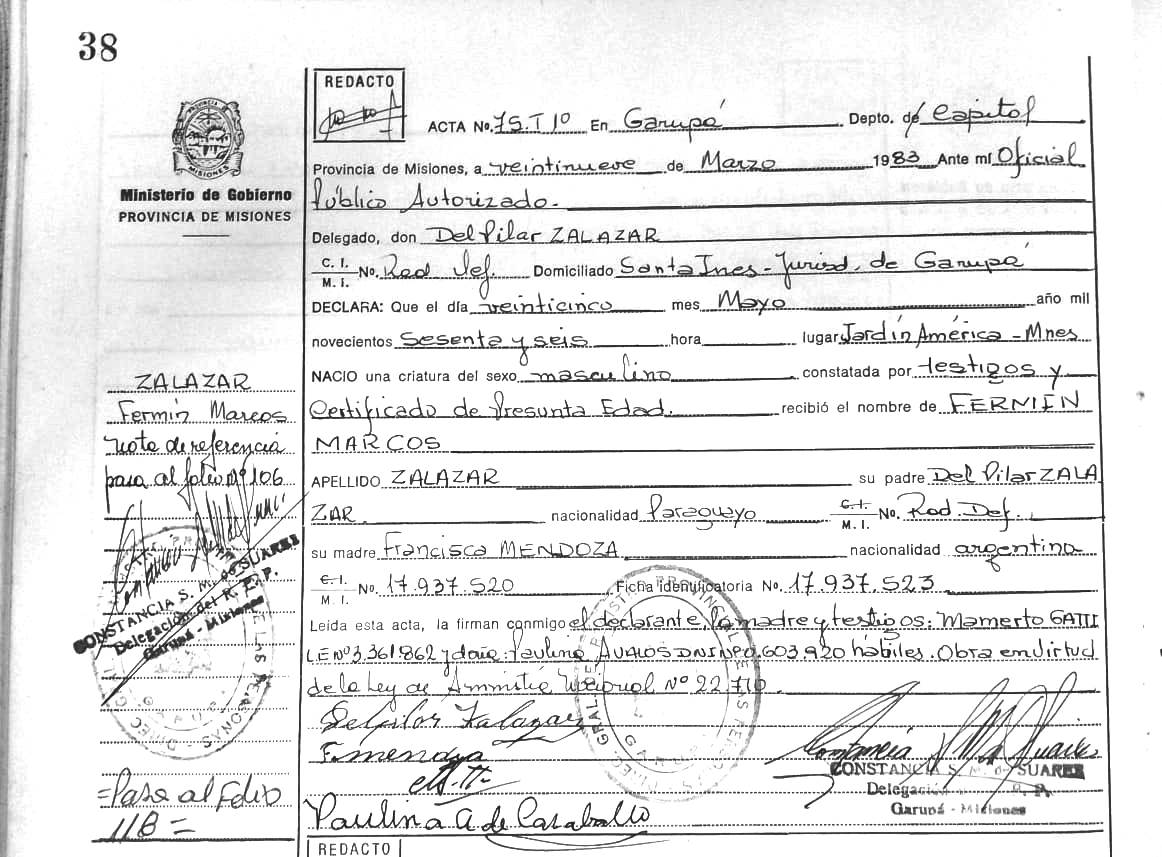 38
REDACTO
ACTA No. 75.T1º En Garupá Depto. de Capital
Provincia de Misiones, a veintinueve de Marzo 1983 Ante mí Oficial
Ministerio de Gobierno
PROVINCIA DE MISIONES
Público Autorizado.
Delegado, don Del Pilar ZALAZAR
C. I.
M. I. No. Red Def. Domiciliado Santa Ines - Jurisd. de Garupá
DECLARA: Que el día veinticinco mes Mayo año mil
novecientos Sesenta y seis hora lugar Jardín América - Mnes
NACIO una criatura del sexo masculino constatada por testigos y
Certificado de Presunta Edad. recibió el nombre de FERMIN
MARCOS
APELLIDO ZALAZAR su padre Del Pilar ZALA
ZAR. nacionalidad Paraguayo C. I.
M. I. No. Rad. Def.
su madre Francisca MENDOZA nacionalidad argentina
C. I.
M. I. No. 17.937.520 Ficha identificatoria No. 17.937.523
Leída esta acta, la firman conmigo el declarante, la madre y testigos: Mamerto GATTI
LE Nº 3.361.862 y doña: Paulina AVALOS DNI Nº 0.603.920 hábiles. Obra en virtud
de la Ley de Amnistía Nacional Nº 22.770.
Delpilar Zalazar
F. mendoza
Paulina A de Caraballo
CONSTANCIA S. M. de SUAREZ
Delegación R. P.
Garupá - Misiones
ZALAZAR
Fermín Marcos
nota de referencia
pasa al folio Nº 106
CONSTANCIA S. M. de SUAREZ
Delegación del R. P.
Garupá - Misiones
=Pasa al Folio
118=
REDACTO